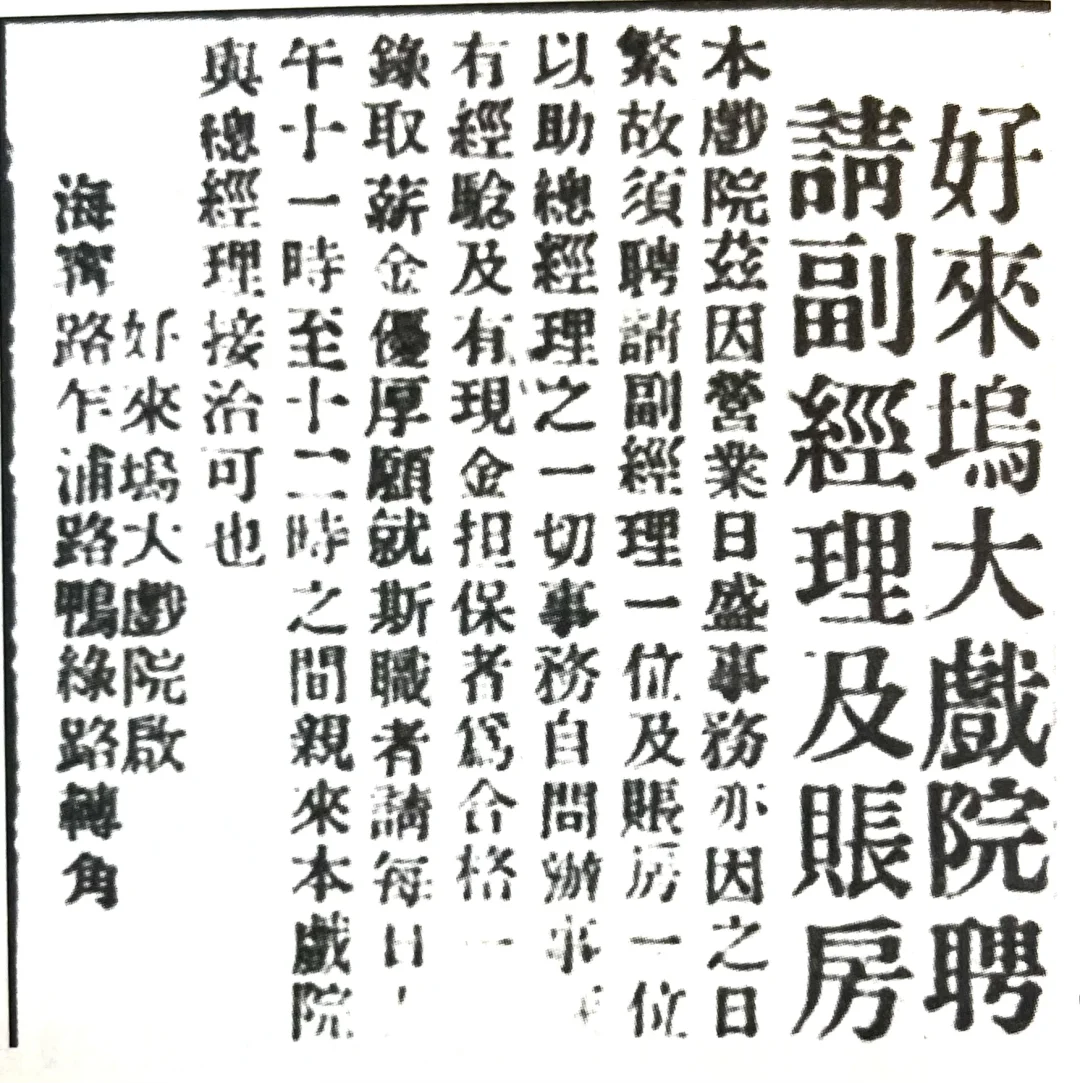 好來塢大戲院聘
請副經理及賬房
本戲院茲因營業日盛事務亦因之日
繁故須聘請副經理一位及賬房一位
以助總經理之一切事務自問辦事
有經驗及有現金担保者爲合格一
錄取薪金優厚願就斯職者請每日
午十一時至十二時之間親來本戲院
與總經理接洽可也
好來塢大戲院啟
海甯路乍浦路鴨綠路轉角